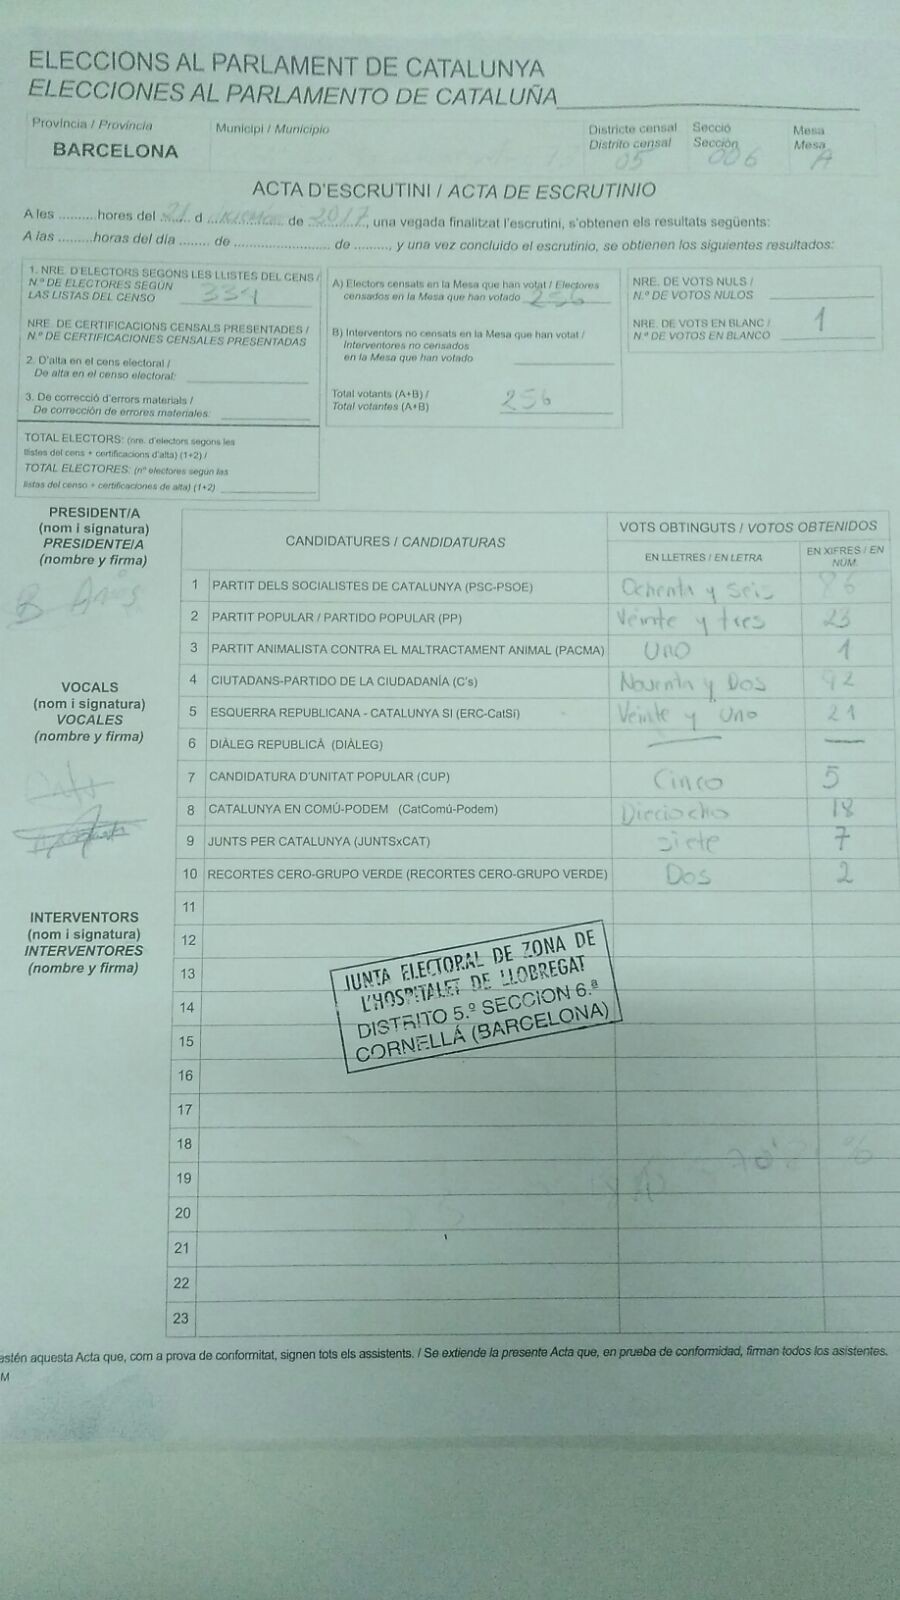 ELECCIONS AL PARLAMENT DE CATALUNYA
ELECCIONES AL PARLAMENTO DE CATALUÑA
Província / Provincia
BARCELONA
Municipi / Municipio
Districte censal
Distrito censal
05
Secció
Sección
006
Mesa
Mesa
A
ACTA D'ESCRUTINI / ACTA DE ESCRUTINIO
A les ..........hores del 21 d ............... de 2017, una vegada finalitzat l'escrutini, s'obtenen els resultats següents:
A las .........horas del día ........ de ........................ de ........., y una vez concluido el escrutinio, se obtienen los siguientes resultados:
1. NRE. D'ELECTORS SEGONS LES LLISTES DEL CENS /
N.º DE ELECTORES SEGÚN
LAS LISTAS DEL CENSO 334
NRE. DE CERTIFICACIONS CENSALS PRESENTADES /
N.º DE CERTIFICACIONES CENSALES PRESENTADAS
2. D'alta en el cens electoral /
De alta en el censo electoral:
3. De correcció d'errors materials /
De corrección de errores materiales:
TOTAL ELECTORS: (nre. d'electors segons les
llistes del cens + certificacions d'alta) (1+2) /
TOTAL ELECTORES: (nº electores según las
listas del censo + certificaciones de alta) (1+2)
A) Electors censats en la Mesa que han votat / Electores
censados en la Mesa que han votado 256
B) Interventors no censats en la Mesa que han votat /
Interventores no censados
en la Mesa que han votado
Total votants (A+B) /
Total votantes (A+B) 256
NRE. DE VOTS NULS /
N.º DE VOTOS NULOS
NRE. DE VOTS EN BLANC /
N.º DE VOTOS EN BLANCO 1
PRESIDENT/A
(nom i signatura)
PRESIDENTE/A
(nombre y firma)
VOCALS
(nom i signatura)
VOCALES
(nombre y firma)
INTERVENTORS
(nom i signatura)
INTERVENTORES
(nombre y firma)
CANDIDATURES / CANDIDATURAS
VOTS OBTINGUTS / VOTOS OBTENIDOS
EN LLETRES / EN LETRA
EN XIFRES / EN
NÚM.
1 PARTIT DELS SOCIALISTES DE CATALUNYA (PSC-PSOE) Ochenta y seis 86
2 PARTIT POPULAR / PARTIDO POPULAR (PP) Veinte y tres 23
3 PARTIT ANIMALISTA CONTRA EL MALTRACTAMENT ANIMAL (PACMA) UNO 1
4 CIUTADANS-PARTIDO DE LA CIUDADANÍA (C's) Noventa y Dos 92
5 ESQUERRA REPUBLICANA - CATALUNYA SI (ERC-CatSí) Veinte y Uno 21
6 DIÀLEG REPUBLICÀ (DIÀLEG) — —
7 CANDIDATURA D'UNITAT POPULAR (CUP) Cinco 5
8 CATALUNYA EN COMÚ-PODEM (CatComú-Podem) Dieciocho 18
9 JUNTS PER CATALUNYA (JUNTSxCAT) siete 7
10 RECORTES CERO-GRUPO VERDE (RECORTES CERO-GRUPO VERDE) Dos 2
11
12
13
14
15
16
17
18
19
20
21
22
23
JUNTA ELECTORAL DE ZONA DE
L'HOSPITALET DE LLOBREGAT
DISTRITO 5.º SECCION 6.ª
CORNELLÁ (BARCELONA)
estén aquesta Acta que, com a prova de conformitat, signen tots els assistents. / Se extiende la presente Acta que, en prueba de conformidad, firman todos los asistentes.
M